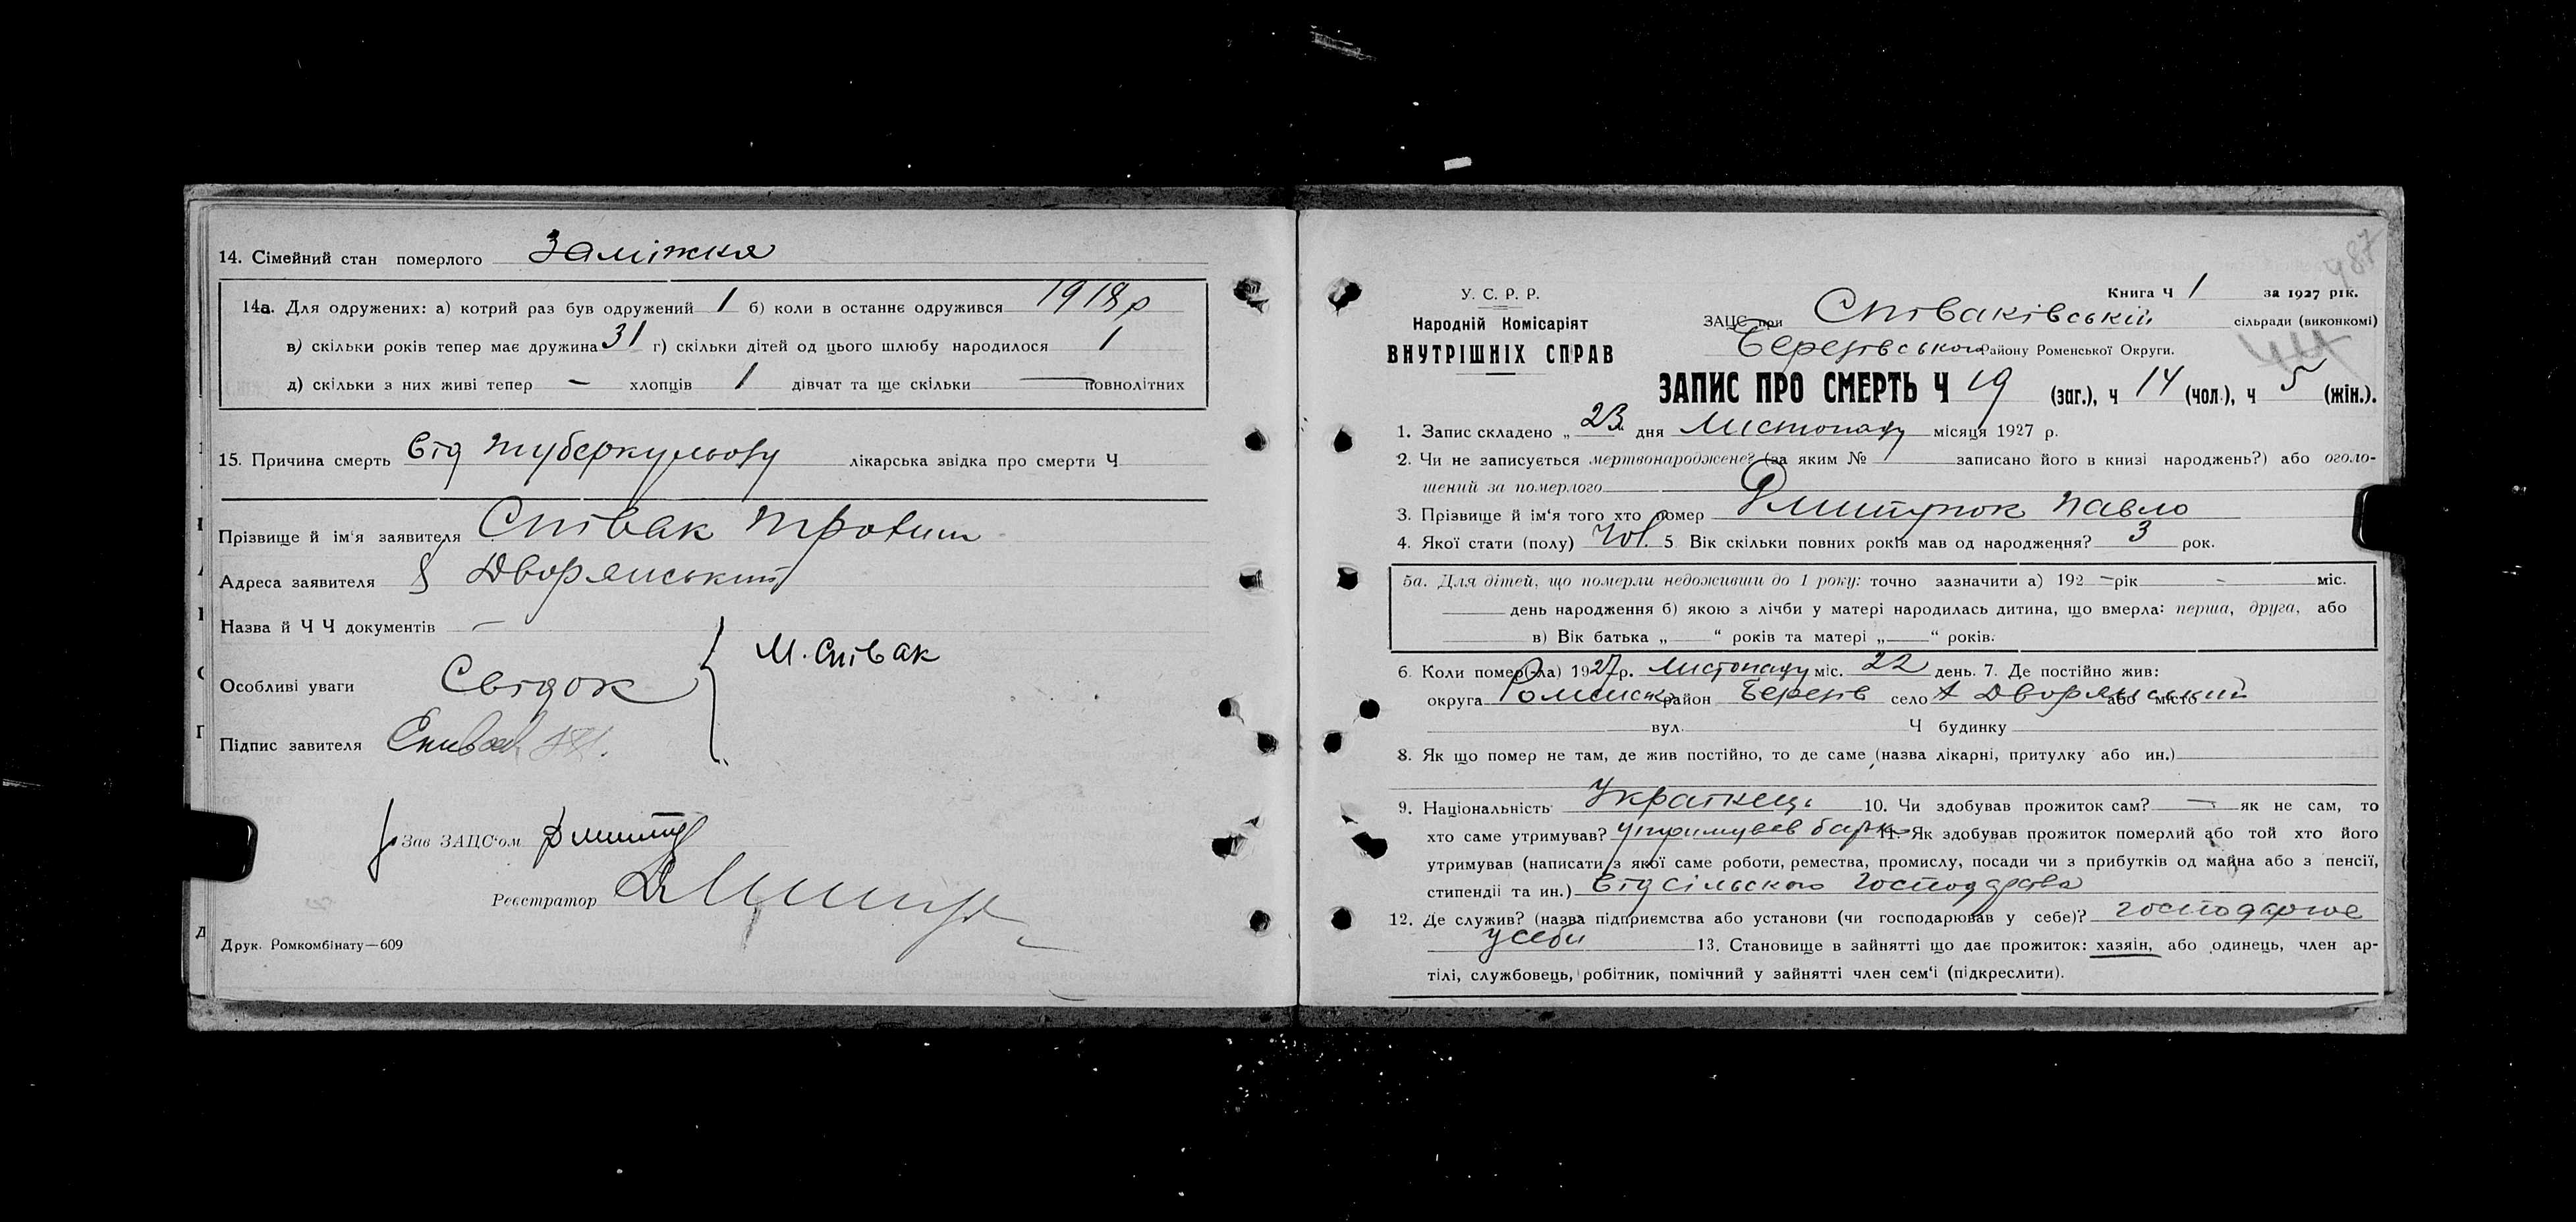 14. Сімейний стан померлого Заміжня
14а. Для одружених: а) котрий раз був одружений 1 б) коли в останнє одружився 1918 р
в) скільки років тепер має дружина 31 г) скільки дітей од цього шлюбу народилося 1
д) скільки з них живі тепер — хлопців 1 дівчат та ще скільки — повнолітних
15. Причина смерть від туберкульозу лікарська звідка про смерти Ч
Прізвище й ім'я заявителя Співак Трохим
Адреса заявителя х Дворянський
Назва й Ч Ч документів —
Особливі уваги Свідок { М. Співак
Підпис завителя Співак
Зав ЗАЦС'ом Дмитр
Реєстратор
Друк. Ромкомбінату—609
487
У. С. Р. Р.
Народній Комісаріят
ВНУТРІШНІХ СПРАВ
Книга Ч 1 за 1927 рік.
ЗАЦС при Співаківській сільради (виконкомі)
Березівського Району Роменської Округи.
44
ЗАПИС ПРО СМЕРТЬ Ч 19 (заг.), ч 14 (чол.), ч 5 (жін.).
1. Запис складено „23" дня Листопаду місяця 1927 р.
2. Чи не записується мертвонароджене? (за яким № записано його в книзі народжень?) або оголо-
шений за померлого
3. Прізвище й ім'я того хто помер Дмитрюк Павло
4. Якої стати (полу) Чол. 5 Вік скільки повних років мав од народження? 3 рок.
5а. Для дітей, що померли недоживши до 1 року: точно зазначити а) 192 — рік — міс.
день народження б) якою з лічби у матері народилась дитина, що вмерла: перша, друга, або
в) Вік батька „ “ років та матері „ “ років.
6. Коли помер(-ла) 1927 р. листопаду міс. 22 день. 7. Де постійно жив:
округа Роменск район Березів село х Дворянський або місто
вул. Ч будинку
8. Як що помер не там, де жив постійно, то де саме (назва лікарні, притулку або ин.)
9. Національність Українець 10. Чи здобував прожиток сам? — як не сам, то
хто саме утримував? утримував батько 11. Як здобував прожиток померлий або той хто його
утримував (написати з якої саме роботи, ремества, промислу, посади чи з прибутків од майна або з пенсії,
стипендії та ин.) від сільского господарства
12. Де служив? (назва підприємства або установи (чи господарював у себе)? господарює
у себи 13. Становище в зайнятті що дає прожиток: хазяін, або одинець, член ар-
тілі, службовець, робітник, помічний у зайнятті член сем'і (підкреслити).